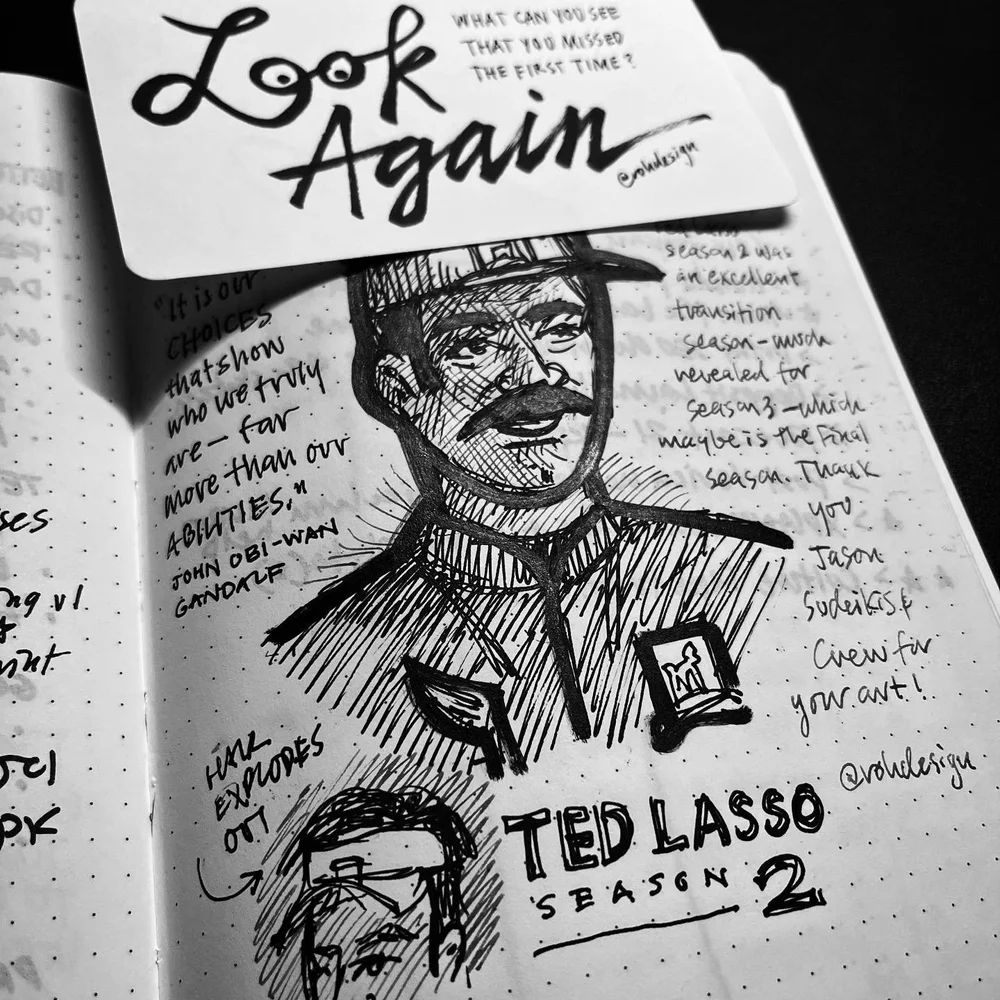 Look
Again
WHAT CAN YOU SEE
THAT YOU MISSED
THE FIRST TIME?
@rohdesign
"It is our
CHOICES
that show
who we truly
are — far
more than our
ABILITIES."
JOHN OBI-WAN
GANDALF
Ted Lasso
season 2 was
an excellent
transition
season - much
revealed for
season 3 - which
maybe is the final
season. Thank
you
Jason
Sudeikis &
Crew for
your art!
@rohdesign
HAIR
EXPLODES
OUT
TED LASSO
SEASON 2